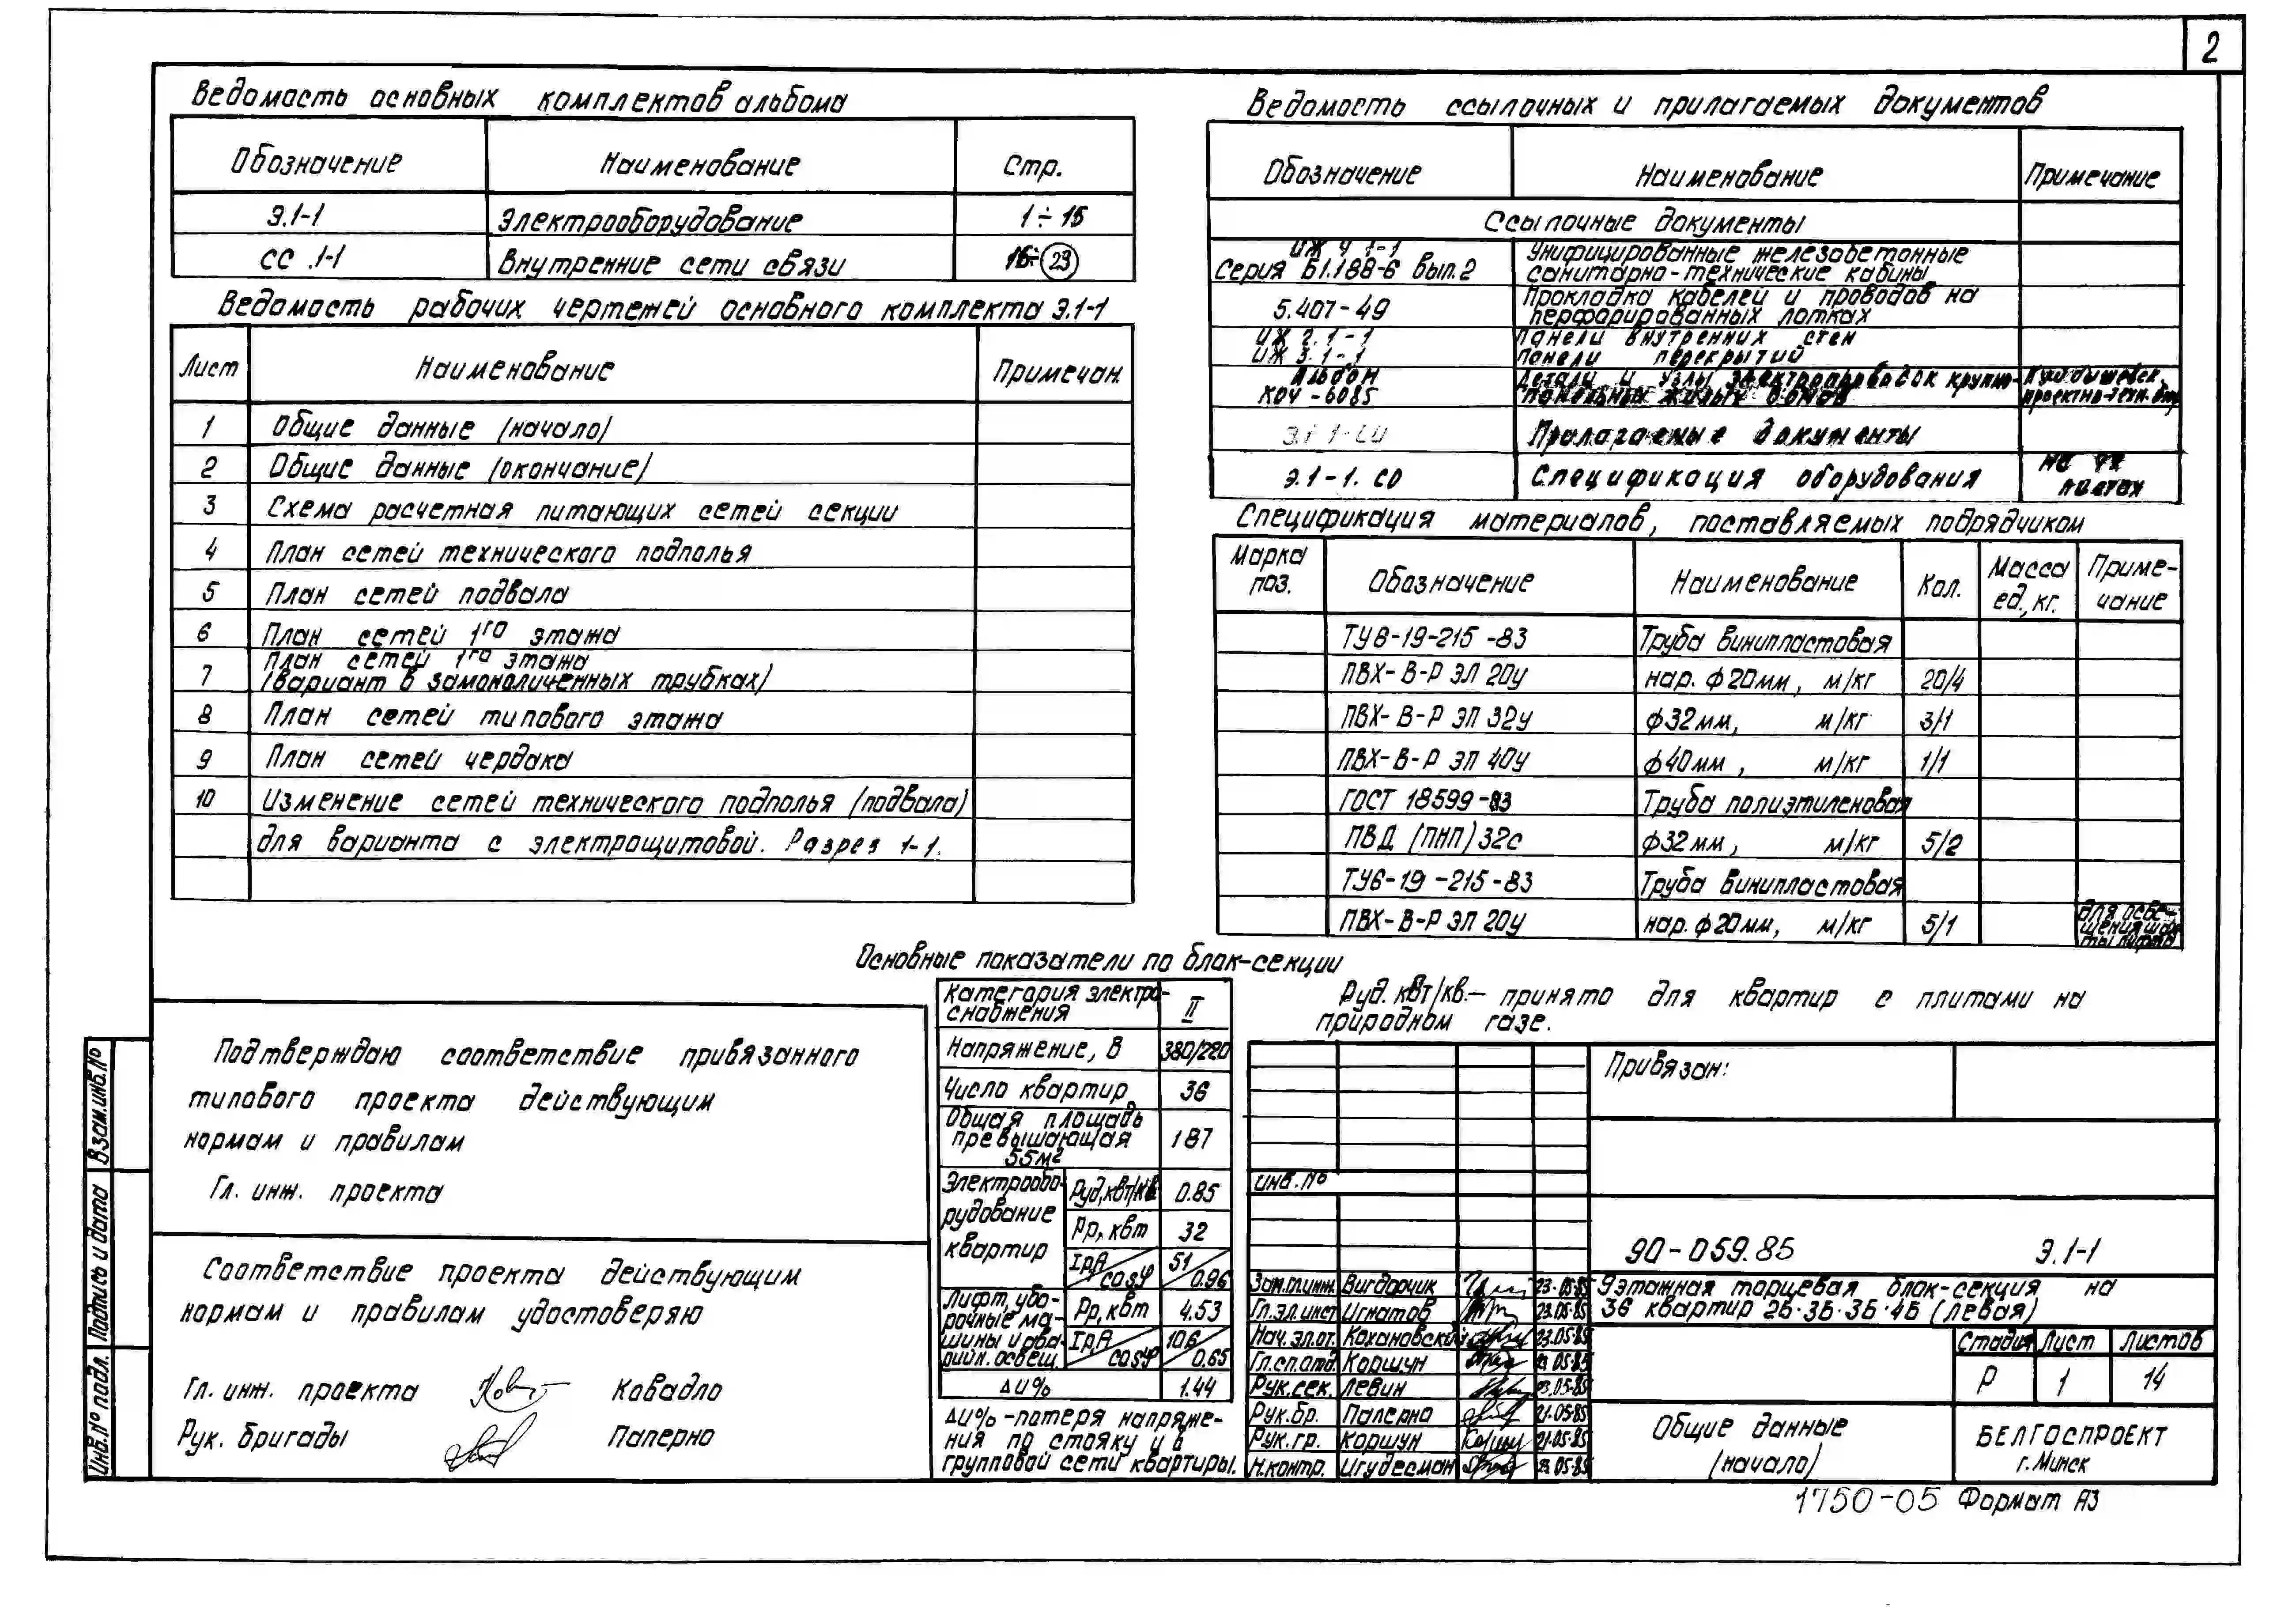 2
Ведомость основных комплектов альбома
Обозначение Наименование Стр.
Э.1-1 Электрооборудование 1÷15
СС.1-1 Внутренние сети связи 16÷23
Ведомость рабочих чертежей основного комплекта Э.1-1
Лист Наименование Примечан.
1 Общие данные (начало)
2 Общие данные (окончание)
3 Схема расчетная питающих сетей секции
4 План сетей технического подполья
5 План сетей подвала
6 План сетей 1го этажа
7 План сетей 1го этажа
(вариант в замоноличенных трубках)
8 План сетей типового этажа
9 План сетей чердака
10 Изменение сетей технического подполья (подвала)
для варианта с электрощитовой. Разрез 1-1.
Ведомость ссылочных и прилагаемых документов
Обозначение Наименование Примечание
Ссылочные документы
ИЖ 4.1-1 Унифицированные железобетонные
Серия Б1.188-6 вып.2 санитарно-технические кабины
5.407-49 Прокладка кабелей и проводов на
перфорированных лотках
ИЖ 2.1-1 Панели внутренних стен
ИЖ 3.1-1 Панели перекрытий
Альбом Детали и узлы электропроводок крупно-
КОЧ-6085 панельных жилых домов проектно-техн.
Прилагаемые документы
Э.1-1.СО Спецификация оборудования на листах
Спецификация материалов, поставляемых подрядчиком
Марка поз. Обозначение Наименование Кол. Масса ед., кг. Приме-
чание
ТУ6-19-215-83 Труба винипластовая
ПВХ-В-Р ЭП 20у нар. ф20мм, м/кг 20/4
ПВХ-В-Р ЭП 32у ф32мм, м/кг 3/1
ПВХ-В-Р ЭП 40у ф40мм, м/кг 1/1
ГОСТ 18599-83 Труба полиэтиленовая
ПВД (ПНП) 32с ф32мм, м/кг 5/2
ТУ6-19-215-83 Труба винипластовая
ПВХ-В-Р ЭП 20у нар. ф20мм, м/кг 5/1 для осве-
щения шах-
ты лифта
Основные показатели по блок-секции
Категория электро-
снабжения II
Напряжение, В 380/220
Число квартир 36
Общая площадь
превышающая
55м2 187
Электрообо-
рудование
квартир
Руд, кВт/кв 0.85
Рр, кВт 32
Iр,А/cosφ 51/0.96
Лифт, убо-
рочные ма-
шины и ава-
рийн. освещ.
Рр, кВт 4.53
Iр,А/cosφ 10.6/0.65
ΔU% 1.44
ΔU% - потеря напряже-
ния по стояку и в
групповой сети квартиры.
Руд. кВт/кв. – принято для квартир с плитами на
природном газе.
Подтверждаю соответствие привязанного
типового проекта действующим
нормам и правилам
Гл. инж. проекта
Соответствие проекта действующим
нормам и правилам удостоверяю
Гл. инж. проекта Ковадло
Рук. бригады Паперно
Взам.инв.№
Подпись и дата
Инв.№ подл.
Привязан:
инв.№
90-059.85 Э.1-1
Зам.гл.инж. Вигдорчик 23.05.85
Гл.эл.инст Игнатов 23.05.85
Нач.эл.от. Кохановский 23.05.85
Гл.сп.отд. Коршун 21.05.85
Рук.сек. Левин 23.05.85
Рук.бр. Паперно 21.05.85
Рук.гр. Коршун 21.05.85
Н.контр. Игудесман 05.85
9этажная торцевая блок-секция на
36 квартир 2Б·3Б·3Б·4Б (левая)
Стадия Лист Листов
Р 1 14
Общие данные
(начало)
БЕЛГОСПРОЕКТ
г. Минск
1750-05 Формат А3